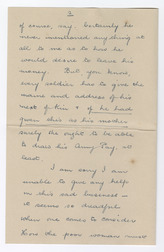 3
of course, say. Certainly he
never mentioned anything at
all to me as to how he
would desire to leave his
money. But you know,
every soldier has to give the
name and address of his
next of kin & if he had
given this as his mother
surely she ought to be able
to draw his Army Pay, at
least.
I am sorry I am
unable to give any help
in this sad business &
it seems so dreadful
when one comes to consider
how the poor woman must